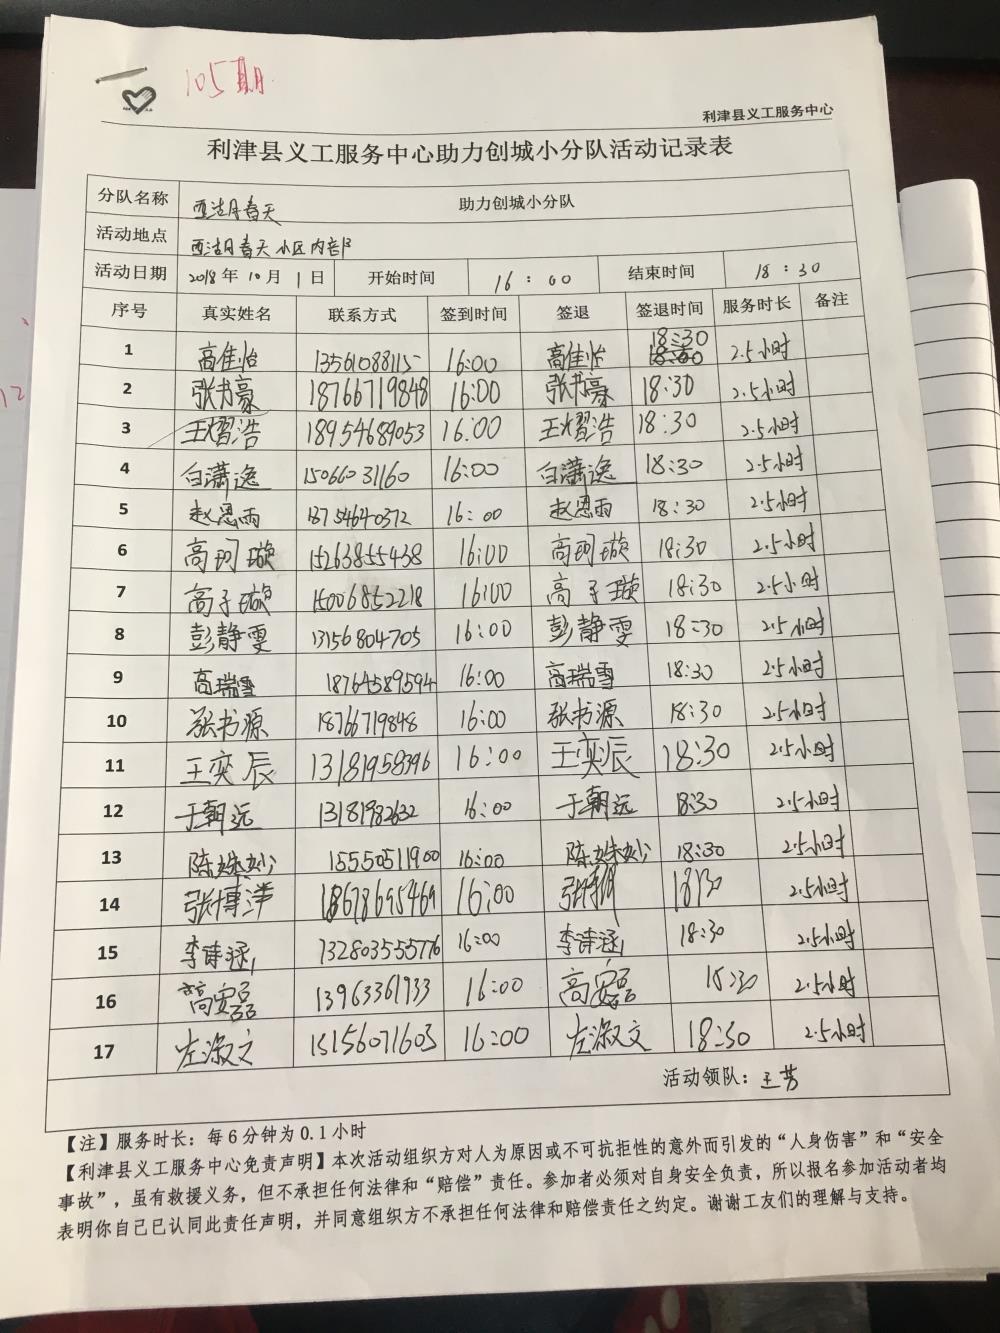 105期
利津县义工服务中心
利津县义工服务中心助力创城小分队活动记录表
分队名称 西湖春天 助力创城小分队
活动地点 西湖春天小区内部
活动日期 2018年10月1日 开始时间 16:00 结束时间 18:30
序号 真实姓名 联系方式 签到时间 签退 签退时间 服务时长 备注
1 高佳怡 13561088115 16:00 高佳怡 18:30 2.5小时
2 张书豪 18766719848 16:00 张书豪 18:30 2.5小时
3 王熠浩 18954689053 16:00 王熠浩 18:30 2.5小时
4 白潇逸 15066031160 16:00 白潇逸 18:30 2.5小时
5 赵恩雨 18754640372 16:00 赵恩雨 18:30 2.5小时
6 高珂璇 15263855438 16:00 高珂璇 18:30 2.5小时
7 高子璇 15006852218 16:00 高子璇 18:30 2.5小时
8 彭静雯 13156804705 16:00 彭静雯 18:30 2.5小时
9 高瑞雪 18764589594 16:00 高瑞雪 18:30 2.5小时
10 张书源 18766719848 16:00 张书源 18:30 2.5小时
11 王奕辰 13181958396 16:00 王奕辰 18:30 2.5小时
12 于朝远 13181982632 16:00 于朝远 18:30 2.5小时
13 陈姝妙 15550511900 16:00 陈姝妙 18:30 2.5小时
14 张博洋 18678695469 16:00 18:30 2.5小时
15 李诗涵 132803555776 16:00 李诗涵 18:30 2.5小时
16 高安磊 13963361933 16:00 高安磊 18:30 2.5小时
17 左淑文 15156071603 16:00 左淑文 18:30 2.5小时
活动领队：王芳
【注】服务时长：每6分钟为0.1小时
【利津县义工服务中心免责声明】本次活动组织方对人为原因或不可抗拒性的意外而引发的“人身伤害”和“安全
事故”，虽有救援义务，但不承担任何法律和“赔偿”责任。参加者必须对自身安全负责，所以报名参加活动者均
表明你自己已认同此责任声明，并同意组织方不承担任何法律和赔偿责任之约定。谢谢工友们的理解与支持。